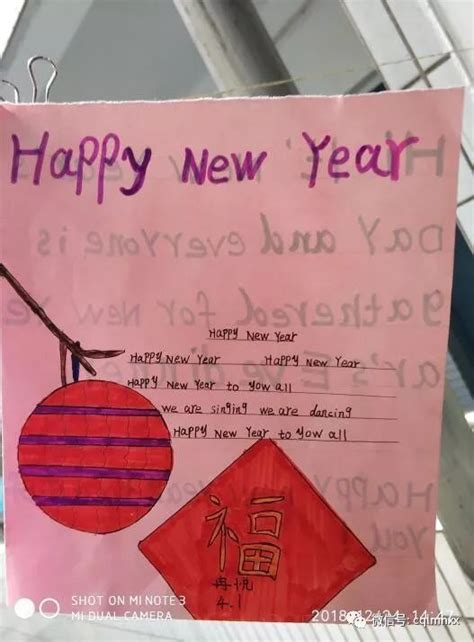 Happy New Year
Happy New Year
Happy New Year Happy New Year
Happy New Year to yow all
we are singing we are dancing
Happy New Year to yow all
福
冉悦
4.1
SHOT ON MI NOTE 3
MI DUAL CAMERA
2018/12/24 14:47
微信号: cqlmhkx